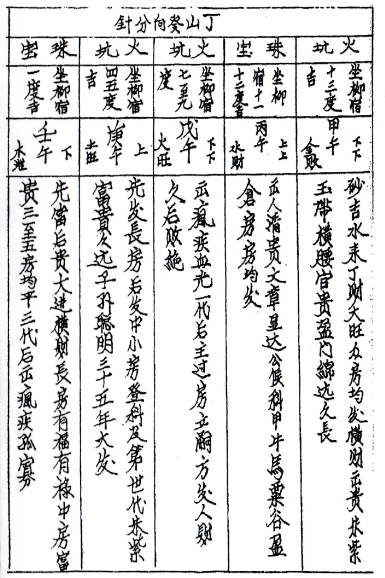 丁山癸向分針
火坑
坐柳宿
十三度
吉
甲午
下下
金敗
砂吉水来丁财大旺众房均发横财出贵朱紫
玉带横腰官贵盈门綿远久長
珠宝
坐柳
宿十一
十二度吉
丙午
上上
水財
出人清贵文章显达公侯科甲牛馬粟谷盈
倉房房均发
火坑
坐柳宿
七至九
度
戊午
下下
火旺
出瘋疾血光一代后主过房立嗣方发人财
久后敗絶
火坑
坐柳宿
四五度
吉
庚午
上
土旺
先发長房后发中小房登科及第世代朱紫
富贵久远子孙聪明三十五年大发
珠宝
坐柳宿
一度吉
壬午
下下
木泄
先富后贵大进横财長房有福有禄中房富
贵三至五房均平三代后出瘋疾孤寡